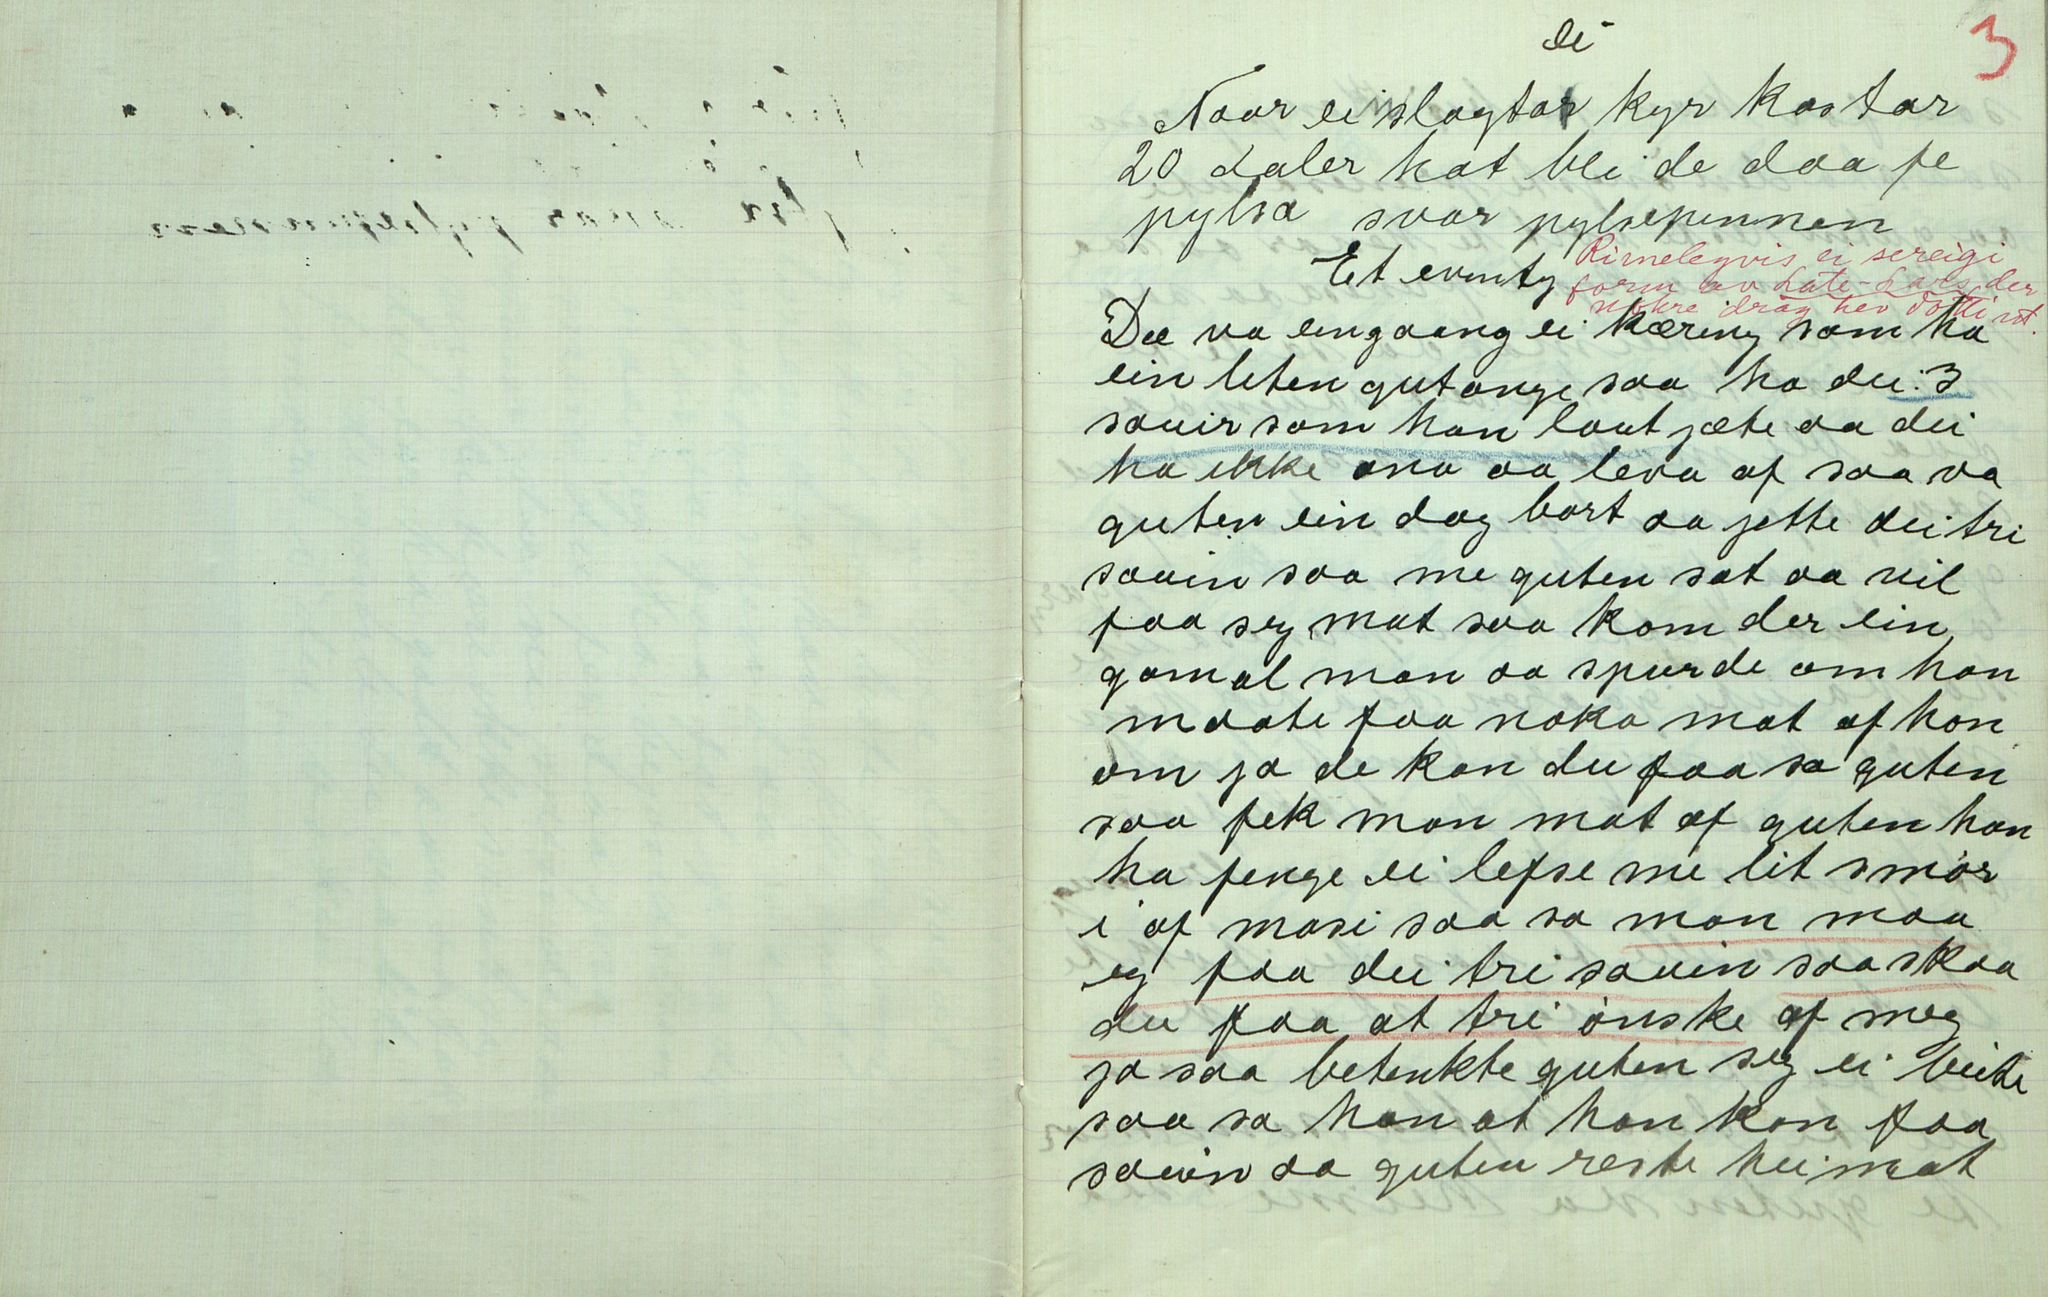 3
ei
Naar ei slagtar kyr kostar
20 daler kat bli de daa fe
pylsa svar pylsepinnen
Et eventy
Rimelegvis ei sereigi
form av Late-Lars, der
nokre drag hev dotti ut.
Dee va eingaang ei kæring som ha
ein liten gutange saa ha dei 3
sauir som han laut jæte aa dei
ha ikke ana aa leva af saa va
guten ein dag bort aa jette dei tri
sauin saa me guten sat aa vil
faa seg mat saa kom der ein
gamal man aa spurde om han
maate faa noka mat af han
om ja de kan du faa sa guten
saa fek man mat af guten han
ha fenge ei lefse me lit smør
i af mosi saa sa man maa
eg faa dei tri sauin saa skaa
du faa at tri ønske af meg
ja saa betenkte guten seg ei beite
saa sa han at han kan faa
sauin aa guten reste heimat